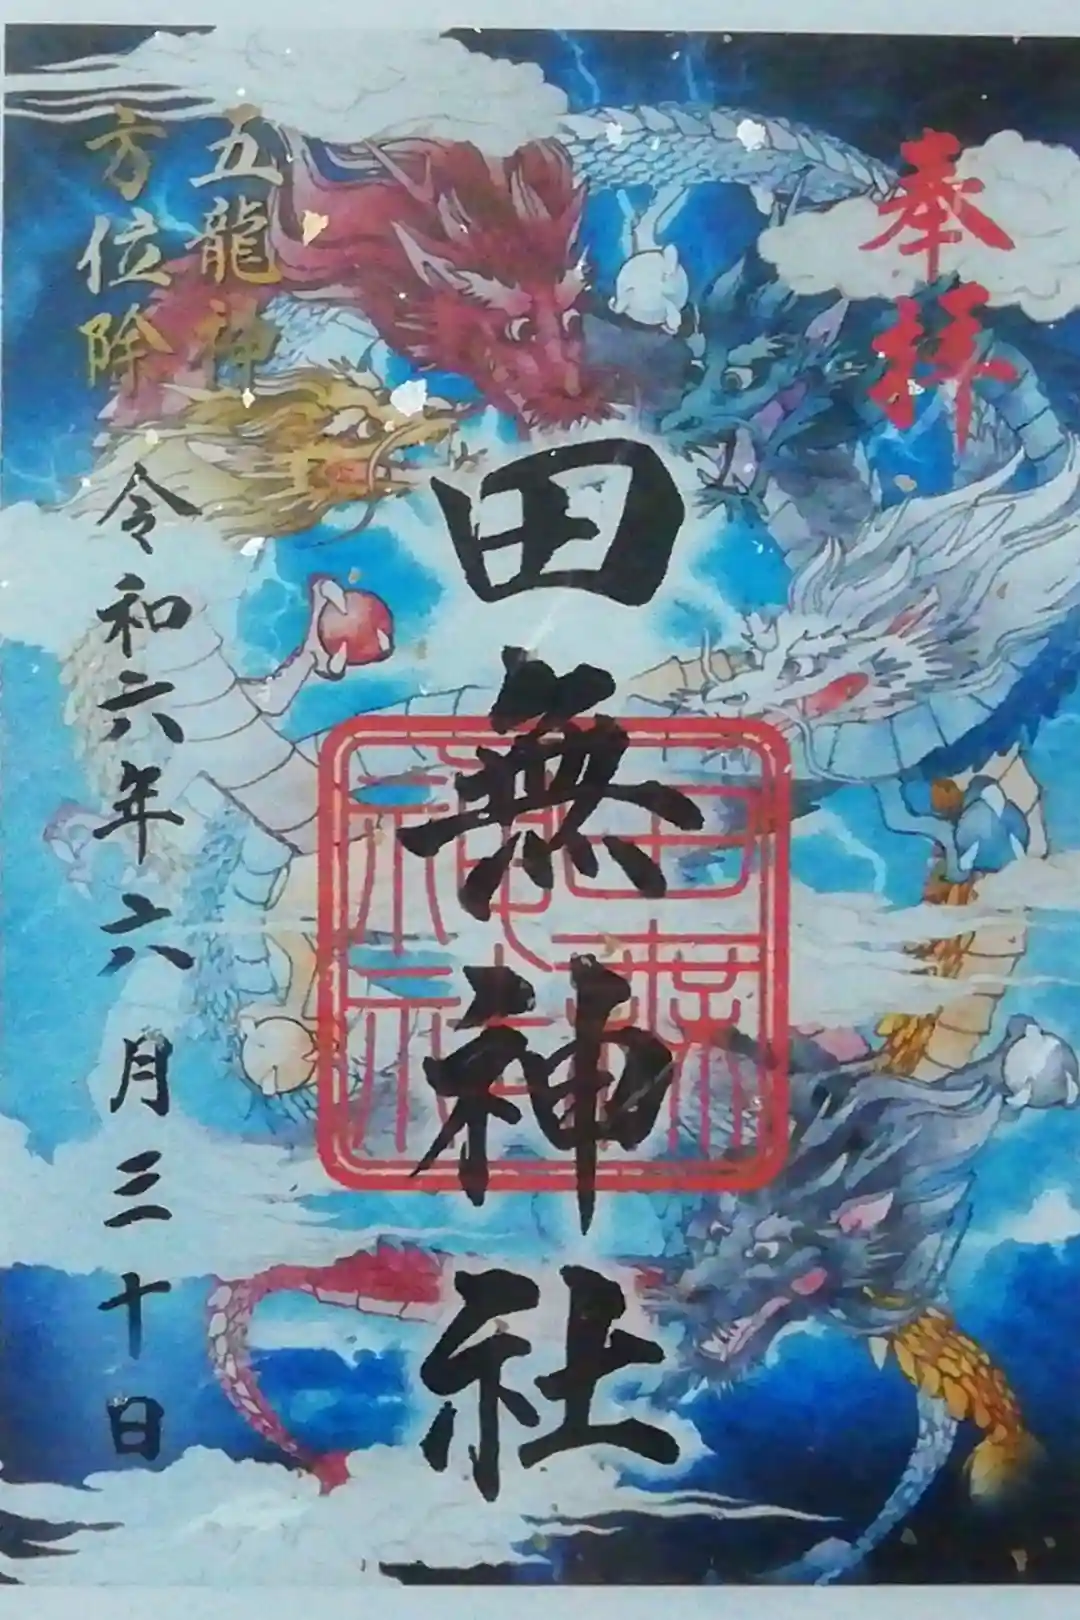 奉拝
田無神社
五龍神
方位除
令和六年六月三十日
田無
神社